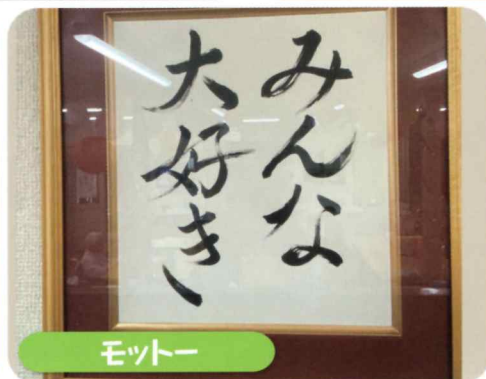 みんな
大好き
モットー